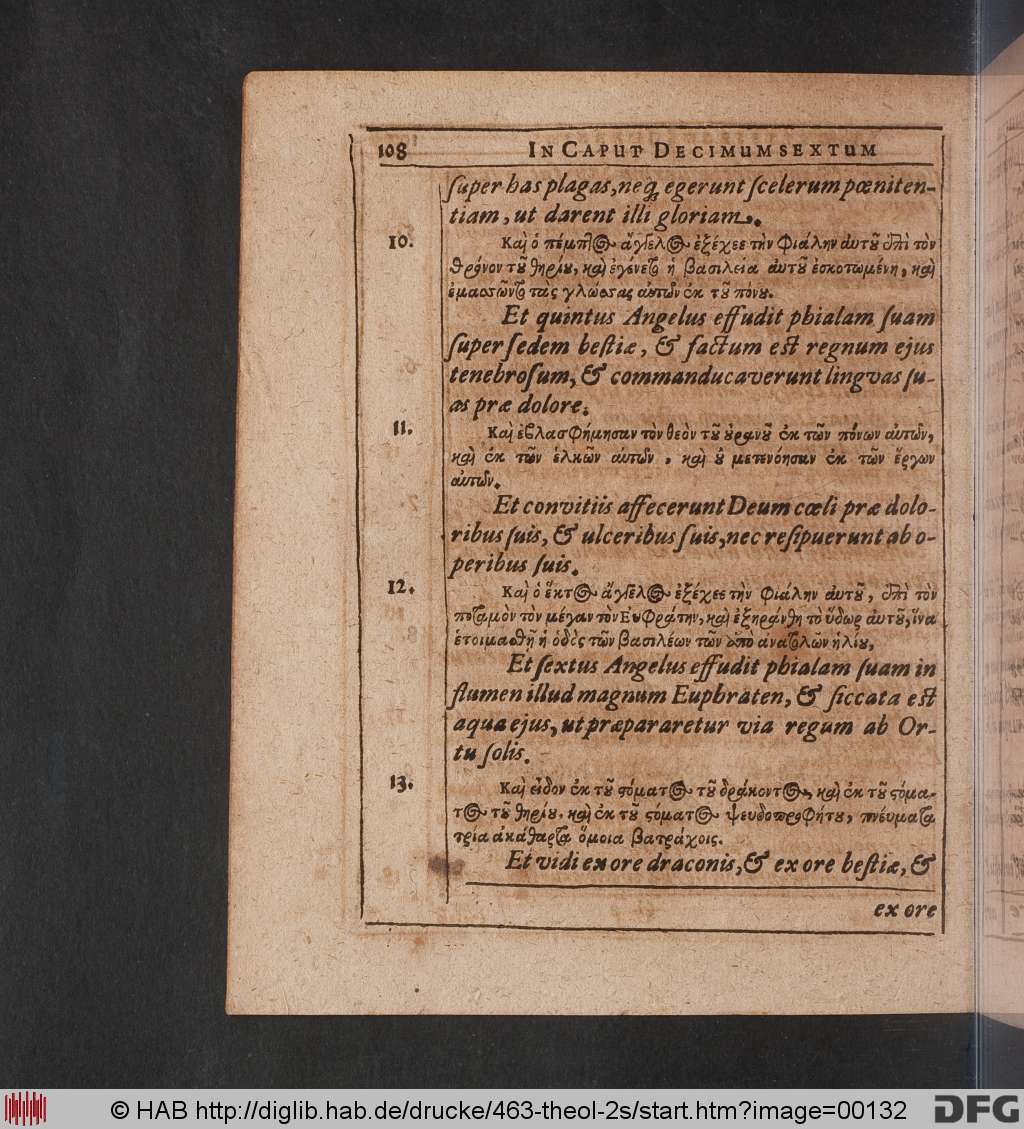 108 IN CAPUT DECIMUMSEXTUM
ſuper has plagas, neq; egerunt ſcelerum pœniten-
tiam, ut darent illi gloriam.
10. Καὶ ὁ πέμπτος ἄγγελος ἐξέχεε τὴν φιάλην αὐτοῦ ἐπὶ τὸν
θρόνον τοῦ θηρίου, καὶ ἐγένετο ἡ βασιλεία αὐτοῦ ἐσκοτωμένη, καὶ
ἐμασσῶντο τὰς γλώσσας αὐτῶν ἐκ τοῦ πόνου.
Et quintus Angelus effudit phialam ſuam
ſuper ſedem beſtiæ, & factum eſt regnum ejus
tenebroſum, & commanducaverunt lingvas ſu-
as præ dolore.
11. Καὶ ἐβλασφήμησαν τὸν θεὸν τοῦ οὐρανοῦ ἐκ τῶν πόνων αὐτῶν,
καὶ ἐκ τῶν ἑλκῶν αὐτῶν, καὶ οὐ μετενόησαν ἐκ τῶν ἔργων
αὐτῶν.
Et convitiis affecerunt Deum cœli præ dolo-
ribus ſuis, & ulceribus ſuis, nec reſipuerunt ab o-
peribus ſuis.
12. Καὶ ὁ ἕκτος ἄγγελος ἐξέχεε τὴν φιάλην αὐτοῦ, ἐπὶ τὸν
ποταμὸν τὸν μέγαν τὸν Εὐφράτην, καὶ ἐξηράνθη τὸ ὕδωρ αὐτοῦ, ἵνα
ἑτοιμασθῇ ἡ ὁδὸς τῶν βασιλέων τῶν ἀπὸ ἀνατολῶν ἡλίου,
Et ſextus Angelus effudit phialam ſuam in
flumen illud magnum Euphraten, & ſiccata eſt
aqua ejus, ut præpararetur via regum ab Or-
tu ſolis.
13. Καὶ εἶδον ἐκ τοῦ στόματος τοῦ δράκοντος, καὶ ἐκ τοῦ στόμα-
τος τοῦ θηρίου, καὶ ἐκ τοῦ στόματος ψευδοπροφήτου, πνεύματα
τρία ἀκάθαρτα ὅμοια βατράχοις.
Et vidi ex ore draconis, & ex ore beſtiæ, &
ex ore
© HAB http://diglib.hab.de/drucke/463-theol-2s/start.htm?image=00132
DFG